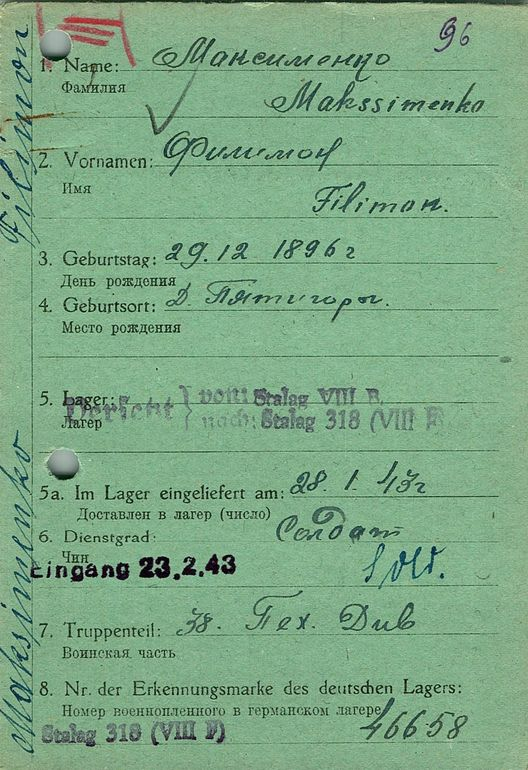 96
1. Name: Максименко
Фамилия
Makssimenko
2. Vornamen: Филимон
Имя
Filimon.
3. Geburtstag: 29.12 1896 г
День рождения
4. Geburtsort: Д. Пятигоры.
Место рождения
5. Lager: Verlegt } vom Stalag VIII B
Лагер nach: Stalag 318 (VIII F)
5a. Im Lager eingeliefert am: 28. 1. 43 г
Доставлен в лагер (число)
6. Dienstgrad: Солдат
Чин
Eingang 23.2.43
Sold.
7. Truppenteil: 38. Пех. Див
Воинская часть
8. Nr. der Erkennungsmarke des deutschen Lagers:
Номер военнопленного в германском лагере
46658
Stalag 318 (VIII F)
Maksimenko Filimon